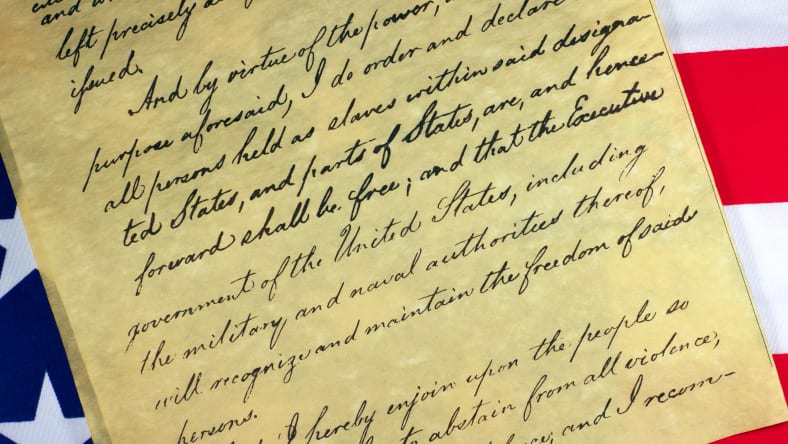 left precisely
issued.
And by virtue of the power,
purpose aforesaid, I do order and declare
all persons held as slaves within said designa-
ted States, and parts of States, are, and hence-
forward shall be free; and that the Executive
government of the United States, including
the military and naval authorities thereof,
will recognize and maintain the freedom of said
persons.
I hereby enjoin upon the people so
to abstain from all violence,
and I recom-